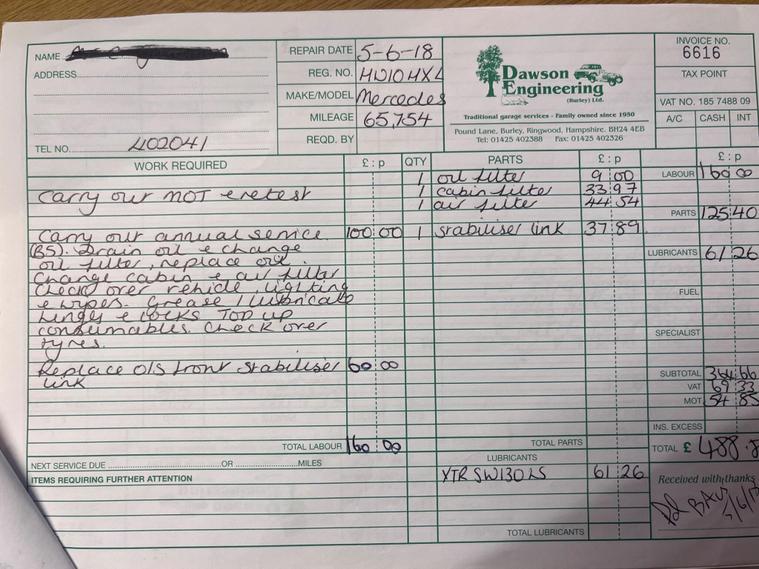 NAME
ADDRESS
TEL NO. 402041
REPAIR DATE 5-6-18
REG. NO. HW10 HXL
MAKE/MODEL Mercedes
MILEAGE 65,754
REQD. BY
Dawson
Engineering
(Burley) Ltd.
Traditional garage services - Family owned since 1950
Pound Lane, Burley, Ringwood, Hampshire. BH24 4EB
Tel: 01425 402388 Fax: 01425 402326
INVOICE NO.
6616
TAX POINT
VAT NO. 185 7488 09
A/C CASH INT
WORK REQUIRED £ : p QTY PARTS £ : p £ : p
1 oil filter 9 00
Carry out MOT & retest 1 cabin filter 33 97
1 air filter 44 54
Carry out annual service 100 00 1 stabiliser link 37 89
(B5). Drain oil & change
oil filter, replace oil.
Change cabin & air filter
Check over vehicle, lighting
& wipers. Grease / lubricate
hinges & locks Top up
consumables. Check over
tyres.
Replace O/S front stabiliser 60 00
link
LABOUR 160 00
PARTS 125 40
LUBRICANTS 61 26
FUEL
SPECIALIST
SUBTOTAL 346 66
VAT 69 33
MOT 54 85
INS. EXCESS
TOTAL £ 488.8
TOTAL LABOUR 160 00
TOTAL PARTS
NEXT SERVICE DUE OR MILES
LUBRICANTS
ITEMS REQUIRING FURTHER ATTENTION
XTR 5W130LS 61 26
TOTAL LUBRICANTS
Received with thanks
Pd BACS
5/6/1